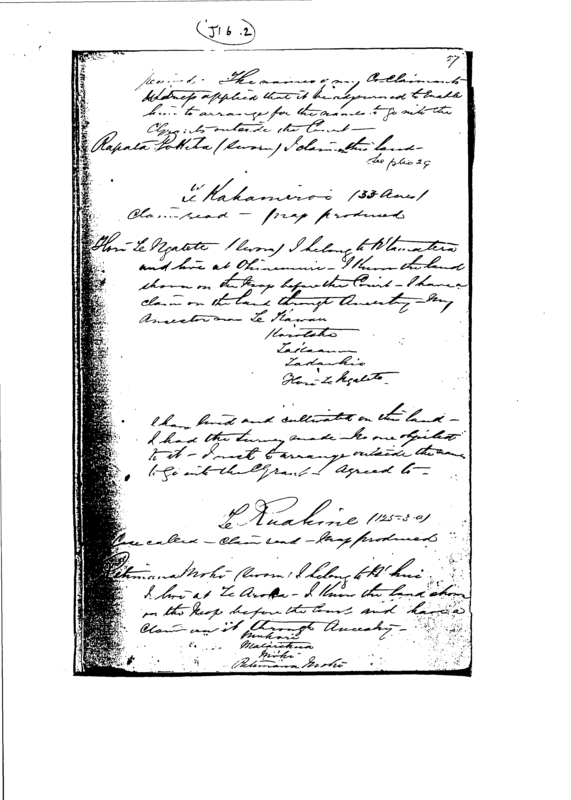 (J16.2)
57
The names of my Co-Claimants
Witness applied that it be adjourned to enable
him to arrange for the names to go into the
C/Grants outside the Court -
Rapata (sworn) I claim this land -
See 29
Te Kahameroi (33 Acres)
Claim read - Map produced
Hori Te Ngatete (sworn) I belong to N'tamatera
and live at Ohinemuri - I know the land
shown on the Map before the Court - I have a
claim on the land through Ancestry - My
Ancestor was Te Kawau
Hori Te Ngatete -
I have lived and cultivated on this land -
I had the survey made - No one objected
to it - I wish to arrange outside the names
to go into the C/Grant - Agreed to -
Te Ruahine (125-3-0)
Case called - Claim read - Map produced
Pehimana Moki (sworn) I belong to N'hue
I live at Te Aroha - I know the land shown
on the Map before the Court and have a
claim on it through Ancestry -
Moki
Pehimana Moki